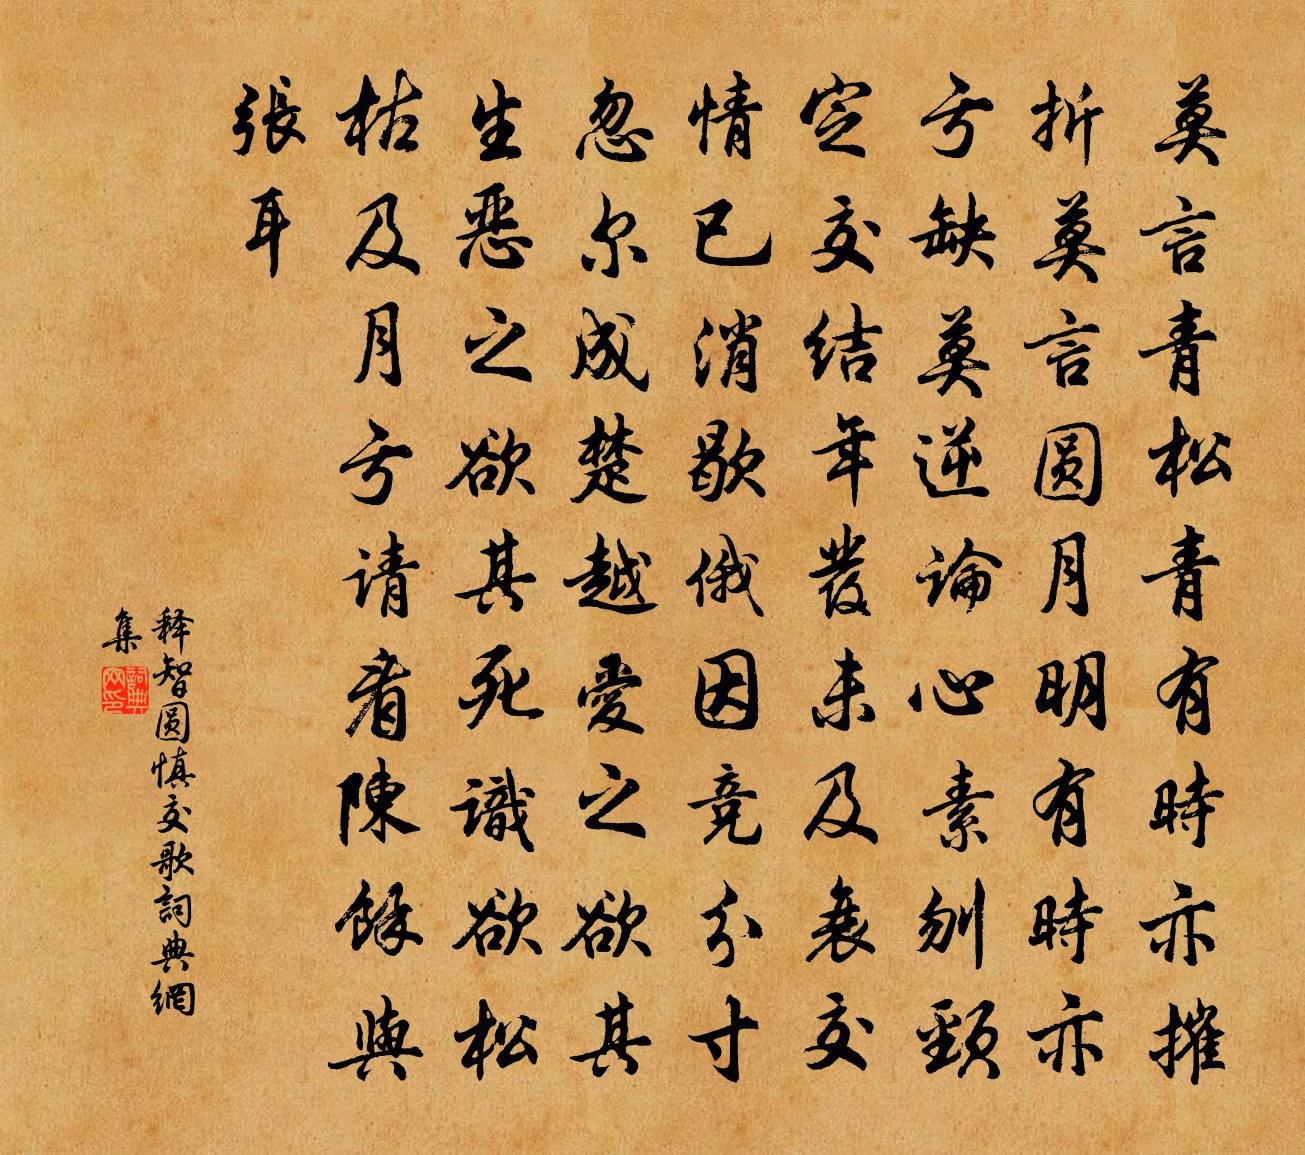 莫言青松青有時亦摧
折莫言圆月明有時亦
亏缺莫逆論心素刎頸
定交結年發未及衰交
情已消歇俄因竞分寸
忽尔成楚越愛之欲其
生惡之欲其死識欲松
枯及月亏请看陳餘與
張耳
释智圆慎交歌詞典網
集
詞典網印